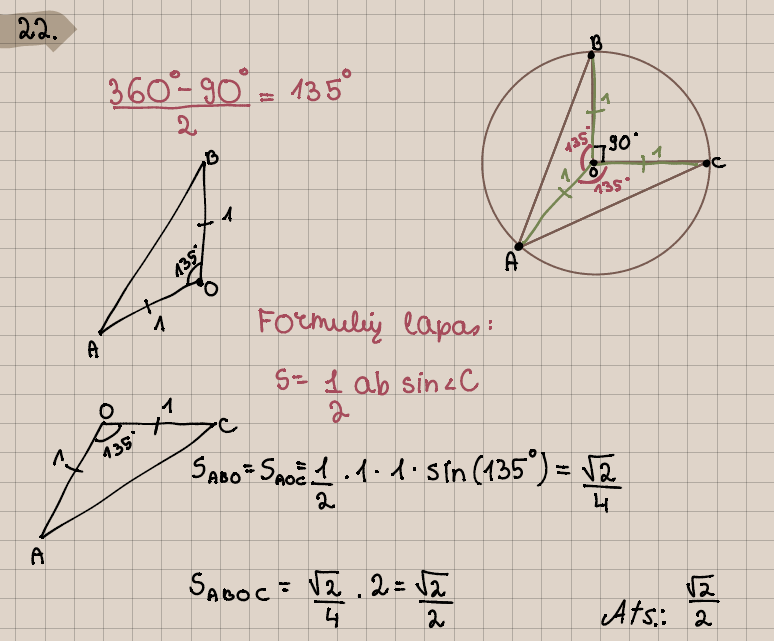 22.
360° - 90° / 2 = 135°
B
1
135°
O
1
A
B
1
135°
90°
1
O
C
1
135°
A
Formulių lapas:
S = 1/2 ab sin∠C
O
1
C
135°
1
A
S_ABO = S_AOC = 1/2 · 1 · 1 · sin(135°) = √2/4
S_ABOC = √2/4 · 2 = √2/2
Ats.: √2/2